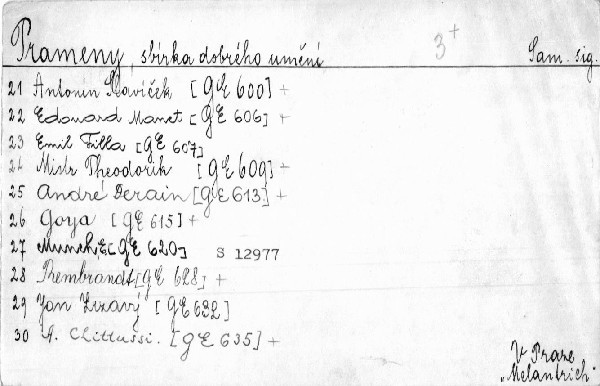 Prameny, sbírka dobrého umění 3+ Sam. sig.
21 Antonín Slavíček [GE 600] +
22 Edouard Manet [GE 606] +
23 Emil Filla [GE 607]
24 Mistr Theodorik [GE 609] +
25 André Derain [GE 613] +
26 Goya [GE 615] +
27 Munch E. [GE 620] S 12977
28 Rembrandt [GE 628] +
29 Jan Zrzavý [GE 632]
30 A. Chittussi. [GE 635] +
V Praze
„Melantrich"